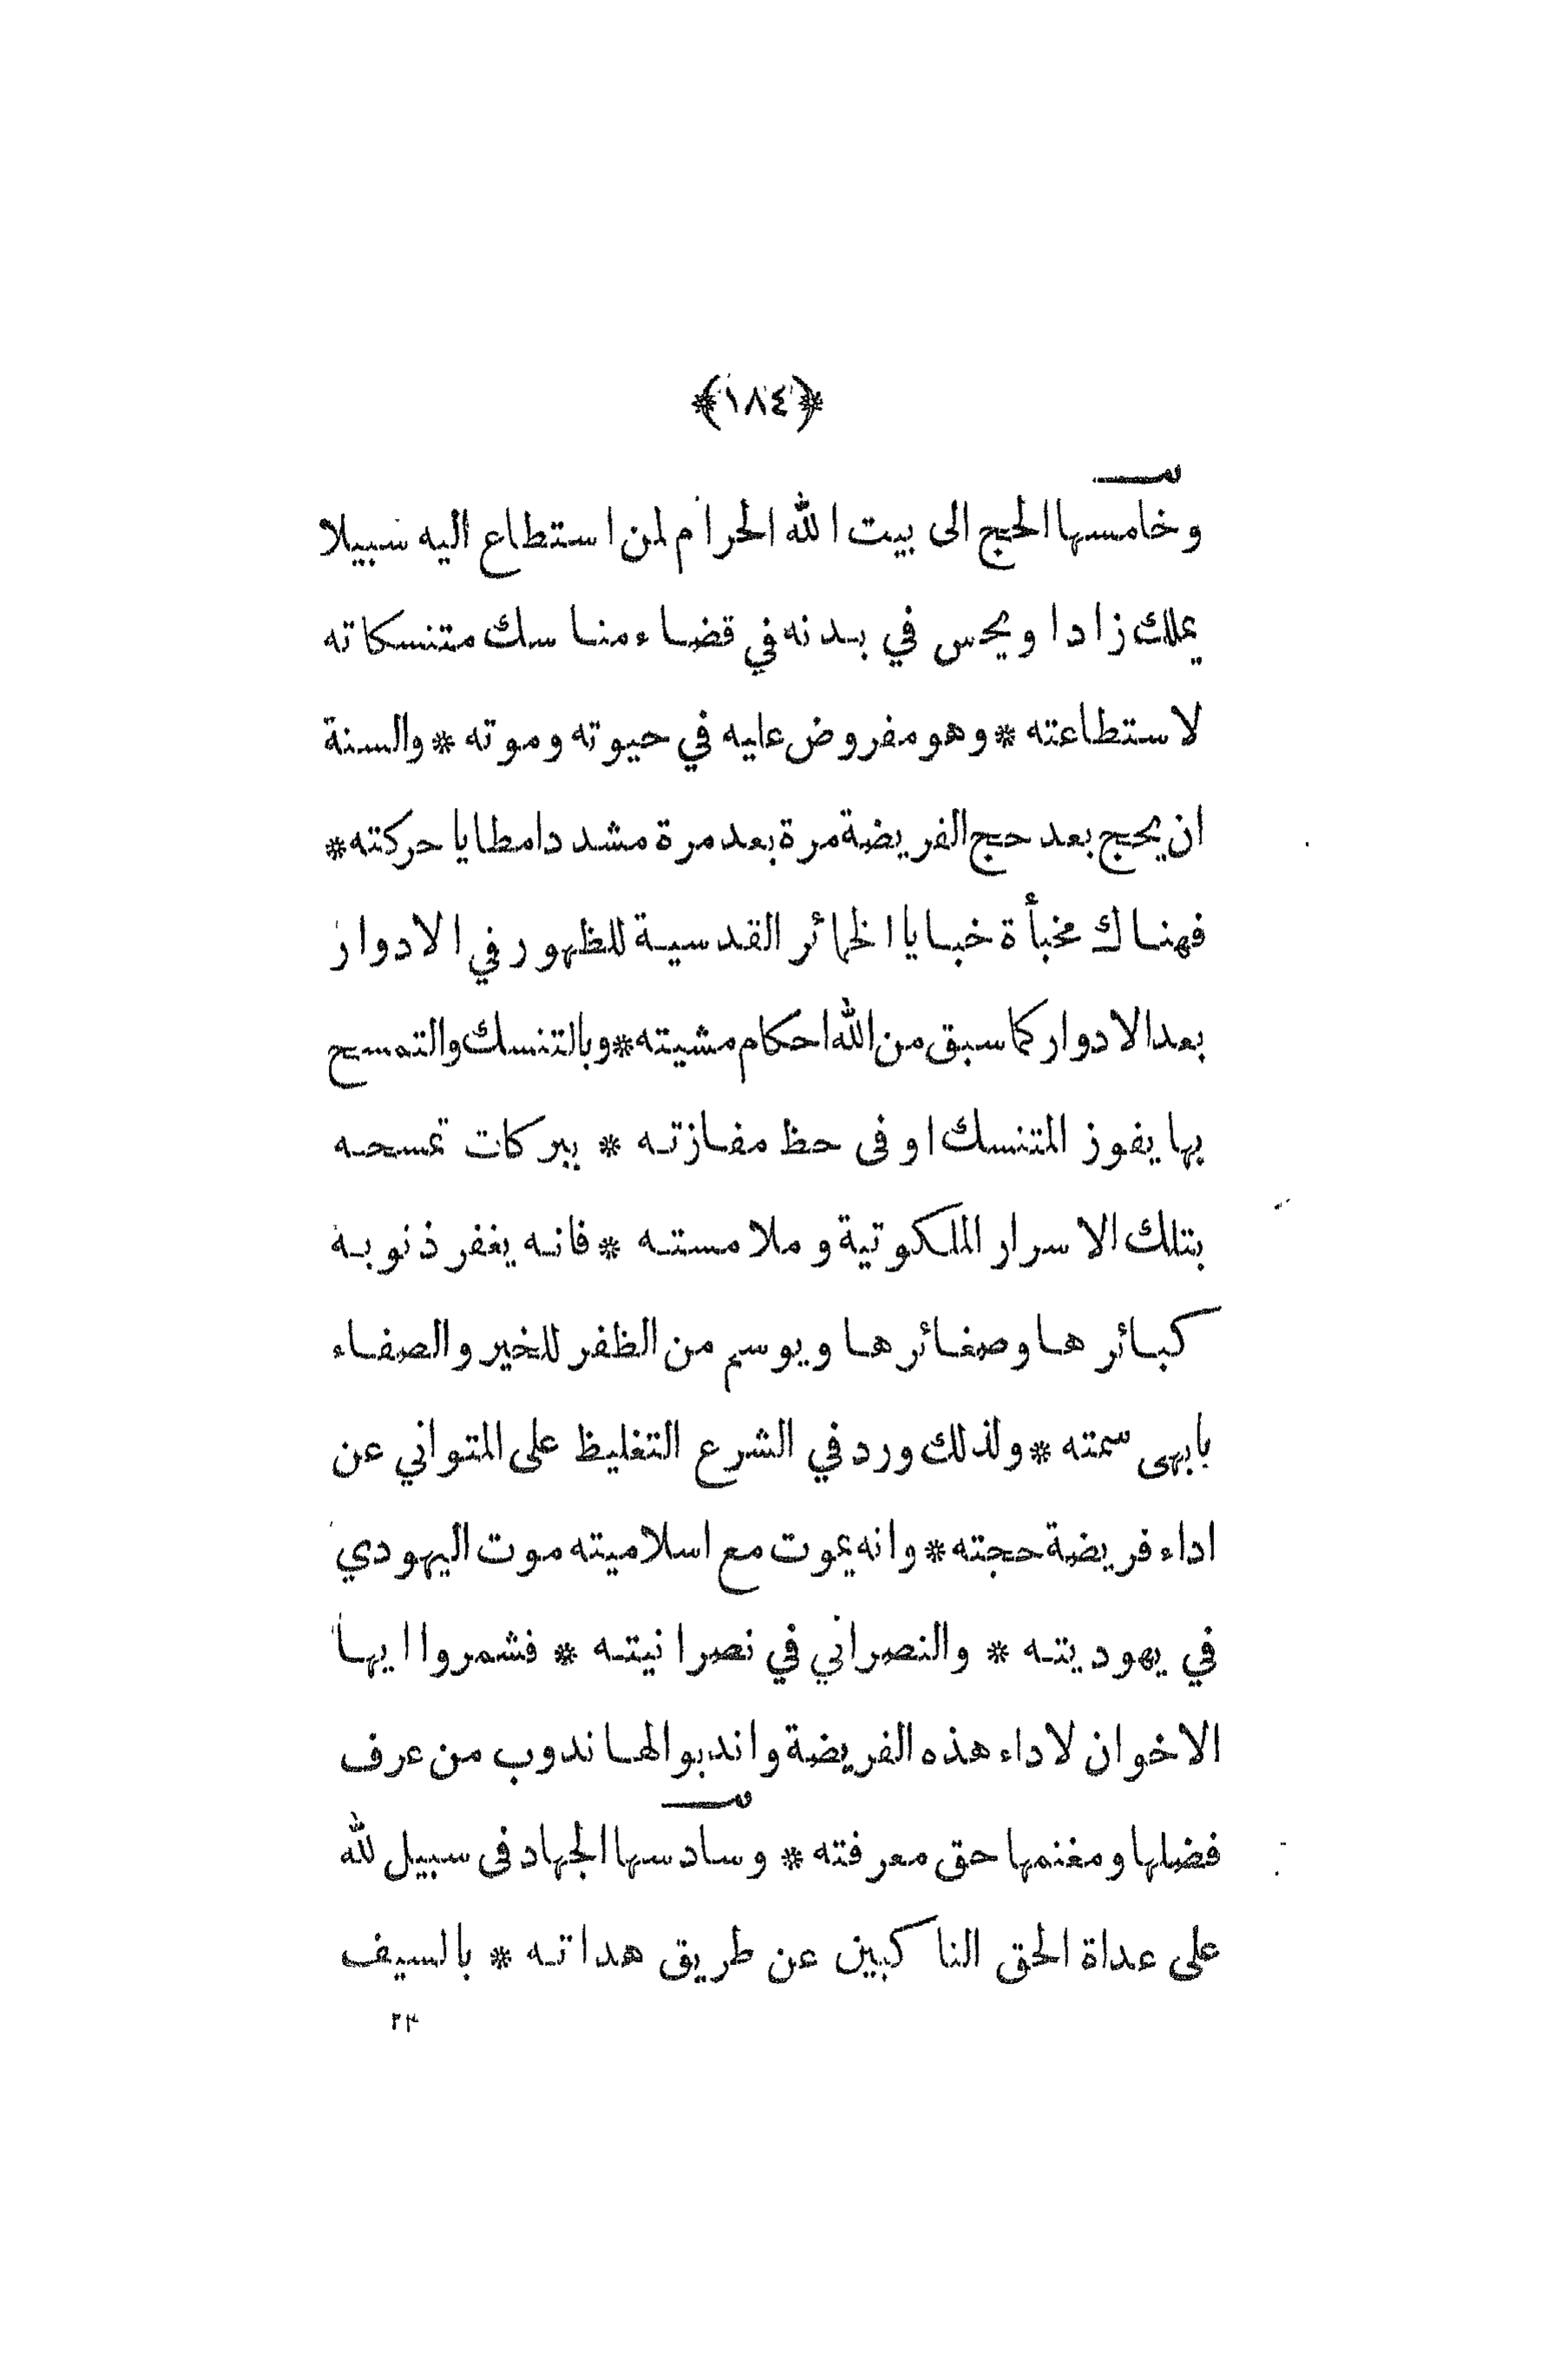 ﴿١٨٤﴾
وخامسها الحج الى بيت الله الحرام لمن استطاع اليه سبيلا
يملك زادا ويحس في بدنه في قضاء مناسك متنسكاته
لاستطاعته * وهو مفروض عليه في حيوته وموته * والسنة
ان يحج بعد حج الفريضة مرة بعد مرة مشددا مطايا حركته *
فهناك مخبأة خبايا الخمائر القدسية للظهور في الادوار
بعد الادوار كما سبق من الله احكام مشيته * وبالتنسك والتمسح
بها يفوز المتنسك اوفى حظ مفازته * ببركات تمسحه
بتلك الاسرار الملكوتية وملامسته * فانه يغفر ذنوبه
كبائرها وصغائرها ويوسم من الظفر للخير والصفاء
بابهى سمته * ولذلك ورد في الشرع التغليظ على المتواني عن
اداء فريضة حجته * وانه يموت مع اسلاميته موت اليهودي
في يهوديته * والنصراني في نصرانيته * فشمروا ايها
الاخوان لاداء هذه الفريضة واندبوا لها ندوب من عرف
فضلها ومغنمها حق معرفته * وسادسها الجهاد فى سبيل لله
على عداة الحق الناكبين عن طريق هداته * بالسيف
٢٣